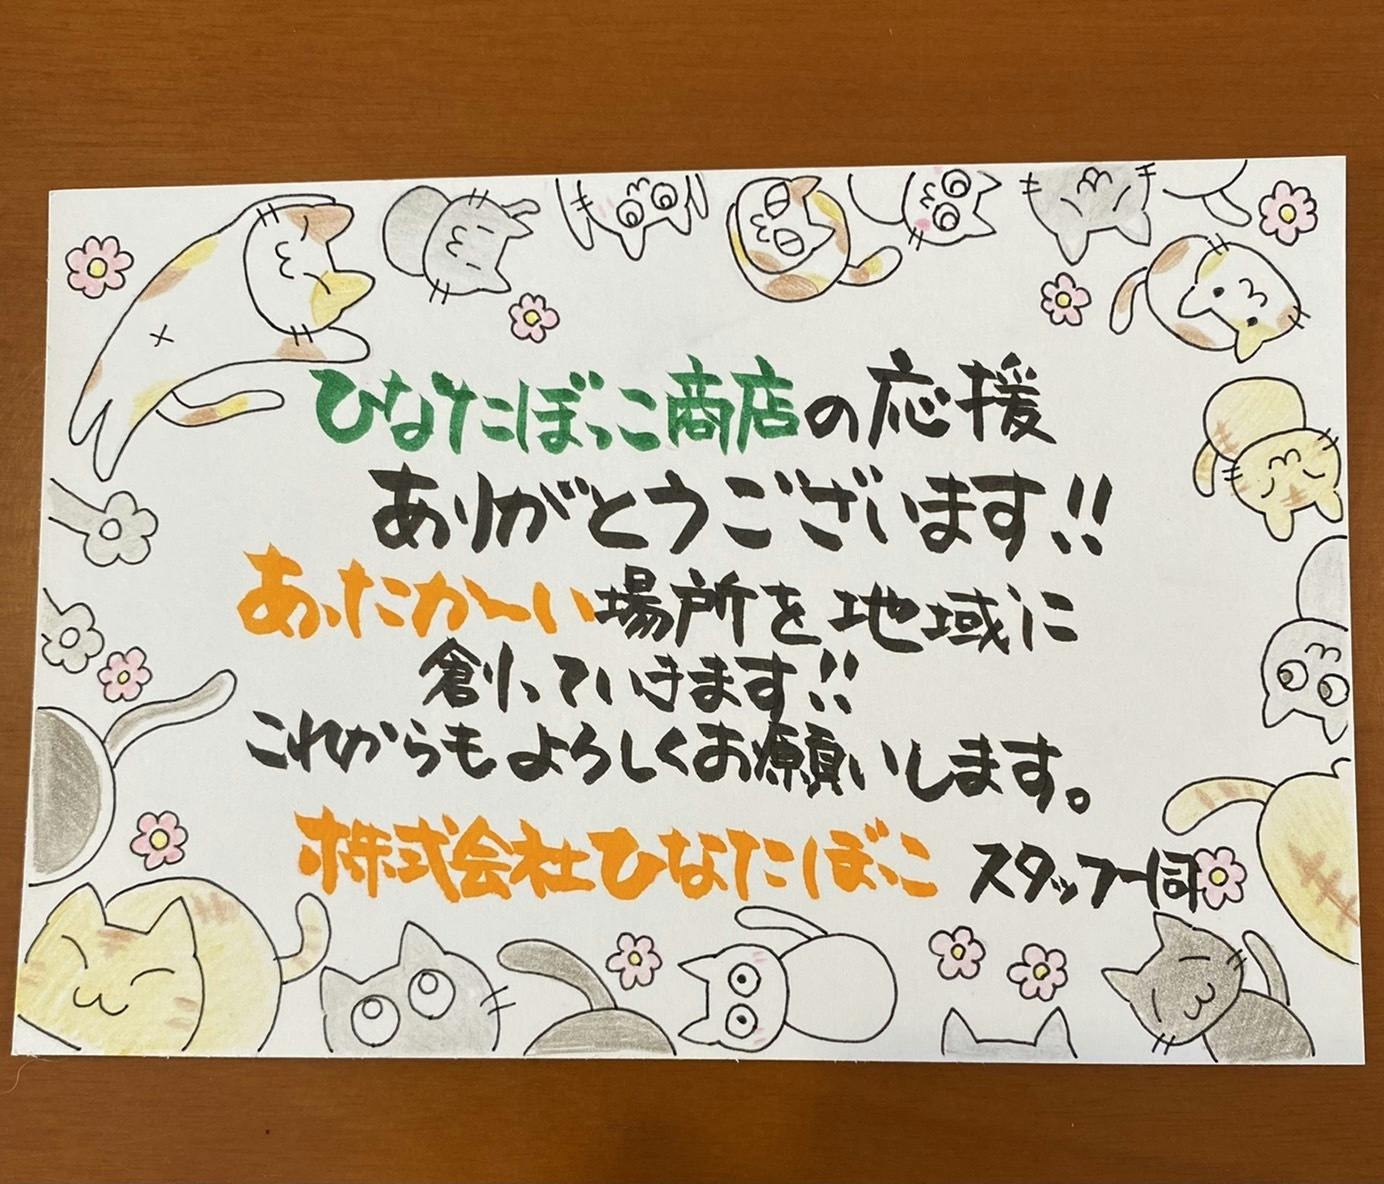 ひなたぼっこ商店の応援
ありがとうございます!!
あったか〜い場所を地域に
創っていきます!!
これからもよろしくお願いします。
株式会社ひなたぼっこ スタッフ一同